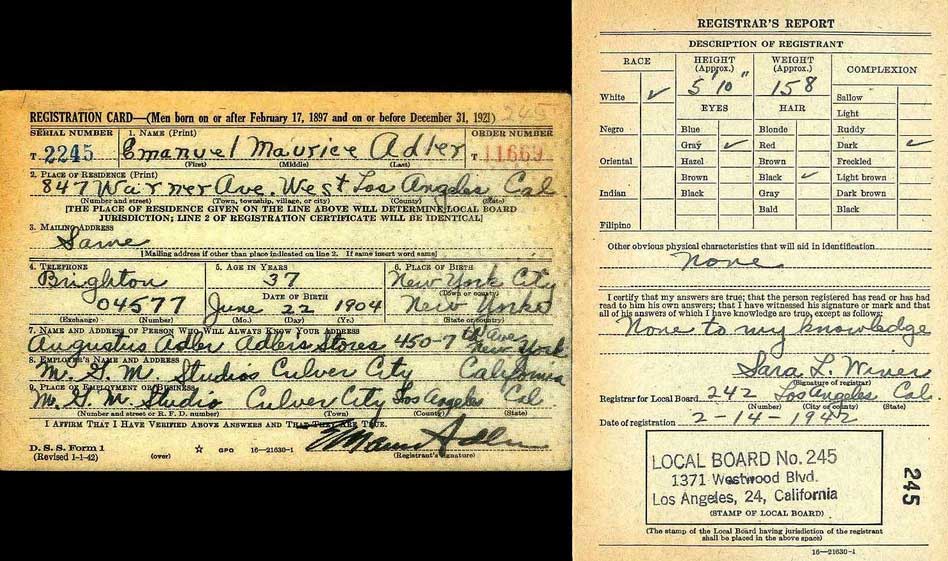 245
REGISTRATION CARD—(Men born on or after February 17, 1897 and on or before December 31, 1921)
SERIAL NUMBER
1. NAME (Print)
ORDER NUMBER
T 2245
Emanuel Maurice Adler
T 11669
(First) (Middle) (Last)
2. PLACE OF RESIDENCE (Print)
847 Warner Ave. West Los Angeles Cal
(Number and street) (Town, township, village, or city) (County) (State)
[THE PLACE OF RESIDENCE GIVEN ON THE LINE ABOVE WILL DETERMINE LOCAL BOARD
JURISDICTION; LINE 2 OF REGISTRATION CERTIFICATE WILL BE IDENTICAL]
3. MAILING ADDRESS
Same
[Mailing address if other than place indicated on line 2. If same insert word same]
4. TELEPHONE
5. AGE IN YEARS
6. PLACE OF BIRTH
Brighton
37
New York City
DATE OF BIRTH
(Town or county)
04577
June 22 1904
New York
(Exchange) (Number)
(Mo.) (Day) (Yr.)
(State or country)
7. NAME AND ADDRESS OF PERSON WHO WILL ALWAYS KNOW YOUR ADDRESS
Augustus Adler Adlers Stores 450-7th Ave New York
8. EMPLOYER'S NAME AND ADDRESS
M. G. M. Studios Culver City California
9. PLACE OF EMPLOYMENT OR BUSINESS
M. G. M. Studio Culver City Los Angeles Cal
(Number and street or R. F. D. number) (Town) (County) (State)
I AFFIRM THAT I HAVE VERIFIED ABOVE ANSWERS AND THAT THEY ARE TRUE.
Adler
D. S. S. Form 1
(Revised 1-1-42) (over) ☆ GPO 16—21630-1 (Registrant's signature)
REGISTRAR'S REPORT
DESCRIPTION OF REGISTRANT
RACE
HEIGHT (Approx.)
WEIGHT (Approx.)
COMPLEXION
5'10"
158
White ✓
Sallow
EYES
HAIR
Light
Negro
Blue
Blonde
Ruddy
Gray ✓
Red
Dark ✓
Oriental
Hazel
Brown
Freckled
Brown
Black ✓
Light brown
Indian
Black
Gray
Dark brown
Bald
Black
Filipino
Other obvious physical characteristics that will aid in identification
None
I certify that my answers are true; that the person registered has read or has had
read to him his own answers; that I have witnessed his signature or mark and that
all of his answers of which I have knowledge are true, except as follows:
None to my knowledge
Sara L.
(Signature of registrar)
Registrar for Local Board 242 Los Angeles Cal.
(Number) (City or county) (State)
Date of registration 2-14-1942
LOCAL BOARD No. 245
1371 Westwood Blvd.
Los Angeles, 24, California
(STAMP OF LOCAL BOARD)
245
(The stamp of the Local Board having jurisdiction of the registrant
shall be placed in the above space)
16—21630-1